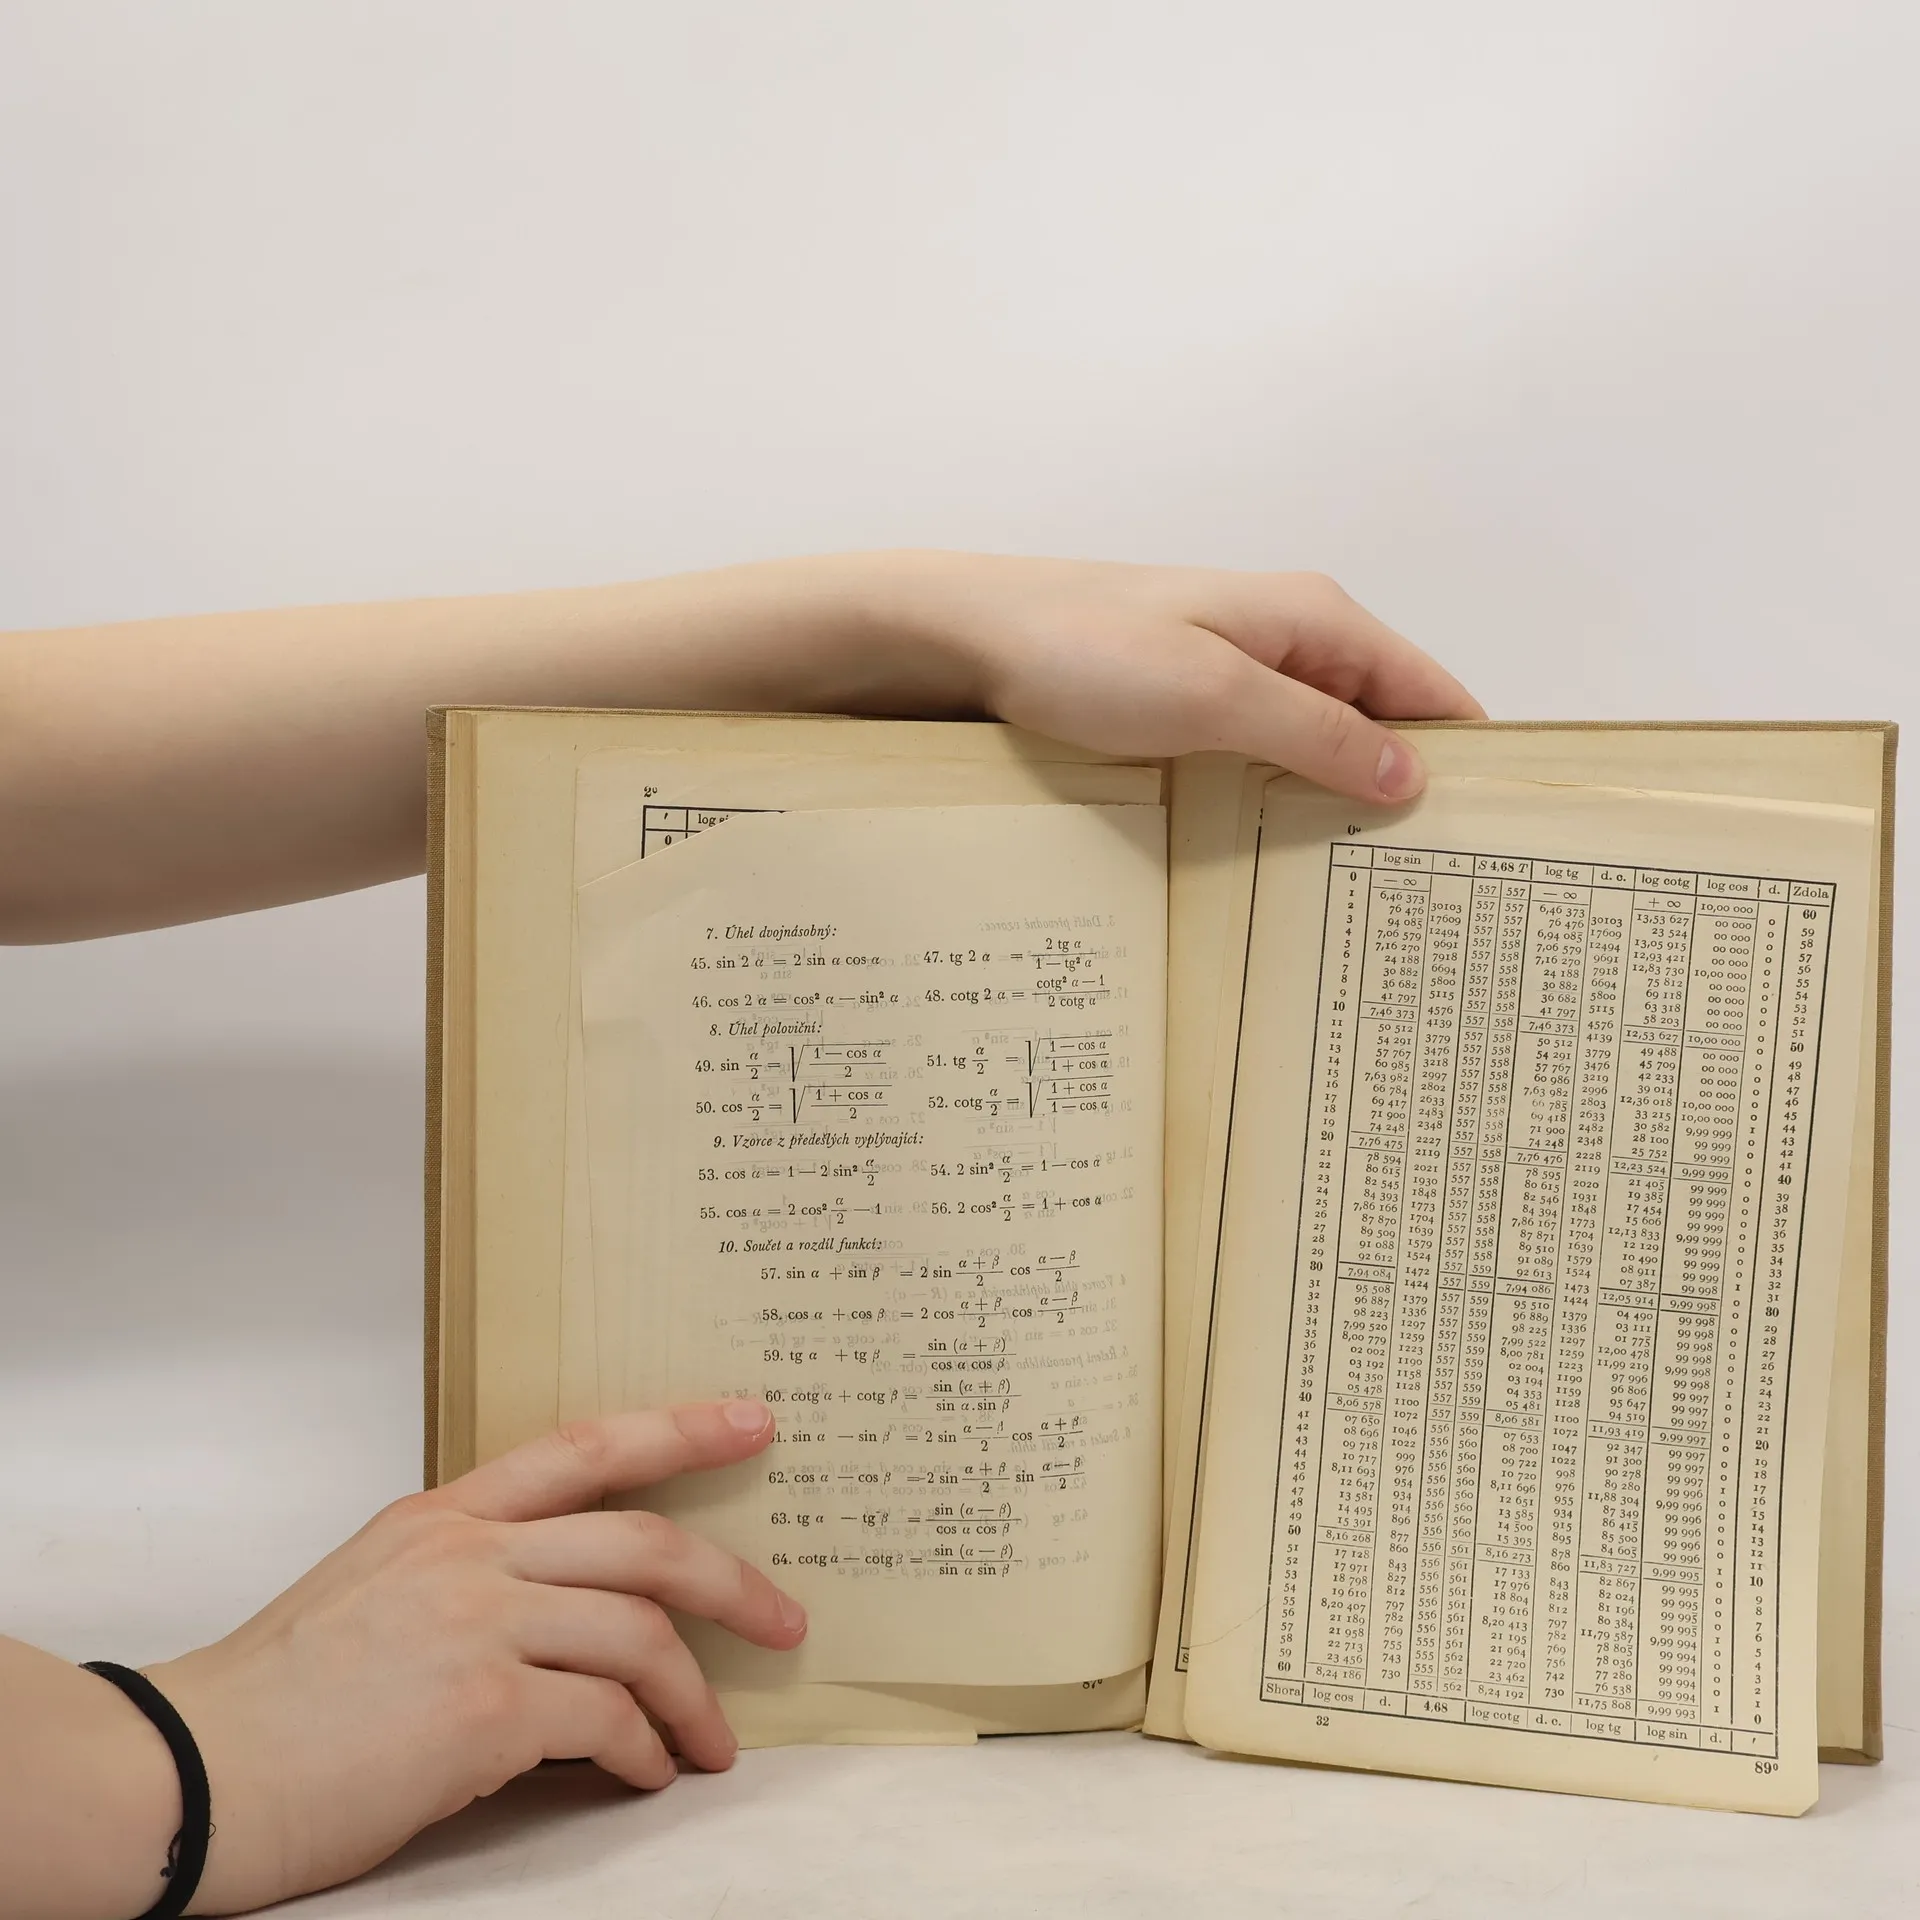 2º
′ log si
0
7. Úhel dvojnásobný:
45. sin 2 α = 2 sin α cos α 47. tg 2 α = 2 tg α / 1 — tg² α
46. cos 2 α = cos² α — sin² α 48. cotg 2 α = cotg² α — 1 / 2 cotg α
8. Úhel poloviční:
49. sin α/2 = √ 1 — cos α / 2 51. tg α/2 = √ 1 — cos α / 1 + cos α
50. cos α/2 = √ 1 + cos α / 2 52. cotg α/2 = √ 1 + cos α / 1 — cos α
9. Vzorce z předešlých vyplývající:
53. cos α = 1 — 2 sin² α/2 54. 2 sin² α/2 = 1 — cos α
55. cos α = 2 cos² α/2 — 1 56. 2 cos² α/2 = 1 + cos α
10. Součet a rozdíl funkcí:
57. sin α + sin β = 2 sin α + β / 2 cos α — β / 2
58. cos α + cos β = 2 cos α + β / 2 cos α — β / 2
59. tg α + tg β = sin (α + β) / cos α cos β
60. cotg α + cotg β = sin (α + β) / sin α . sin β
1. sin α — sin β = 2 sin α — β / 2 cos α + β / 2
62. cos α — cos β =-2 sin α + β / 2 sin α — β / 2
63. tg α — tg β = sin (α — β) / cos α cos β
64. cotg α — cotg β = sin (α — β) / sin α sin β
87º
0º
′ log sin d. S 4,68 T log tg d. c. log cotg log cos d. Zdola
0 — ∞ 557 557 — ∞ + ∞ 10,00 000 60
1 6,46 373 30103 557 557 6,46 373 30103 13,53 627 00 000 0 59
2 76 476 17609 557 557 76 476 17609 23 524 00 000 0 58
3 94 085 12494 557 557 6,94 085 12494 13,05 915 00 000 0 57
4 7,06 579 9691 557 558 7,06 579 9691 12,93 421 00 000 0 56
5 7,16 270 7918 557 558 7,16 270 7918 12,83 730 10,00 000 0 55
6 24 188 6694 557 558 24 188 6694 75 812 00 000 0 54
7 30 882 5800 557 558 30 882 5800 69 118 00 000 0 53
8 36 682 5115 557 558 36 682 5115 63 318 00 000 0 52
9 41 797 4576 557 558 41 797 4576 58 203 00 000 0 51
10 7,46 373 4139 557 558 7,46 373 4139 12,53 627 10,00 000 0 50
11 50 512 3779 557 558 50 512 3779 49 488 00 000 0 49
12 54 291 3476 557 558 54 291 3476 45 709 00 000 0 48
13 57 767 3218 557 558 57 767 3219 42 233 00 000 0 47
14 60 985 2997 557 558 60 986 2996 39 014 00 000 0 46
15 7,63 982 2802 557 558 7,63 982 2803 12,36 018 10,00 000 0 45
16 66 784 2633 557 558 66 785 2633 33 215 10,00 000 1 44
17 69 417 2483 557 558 69 418 2482 30 582 9,99 999 0 43
18 71 900 2348 557 558 71 900 2348 28 100 99 999 0 42
19 74 248 2227 557 558 74 248 2228 25 752 99 999 0 41
20 7,76 475 2119 557 558 7,76 476 2119 12,23 524 9,99 999 0 40
21 78 594 2021 557 558 78 595 2020 21 405 99 999 0 39
22 80 615 1930 557 558 80 615 1931 19 385 99 999 0 38
23 82 545 1848 557 558 82 546 1848 17 454 99 999 0 37
24 84 393 1773 557 558 84 394 1773 15 606 99 999 0 36
25 7,86 166 1704 557 558 7,86 167 1704 12,13 833 9,99 999 0 35
26 87 870 1639 557 558 87 871 1639 12 129 99 999 0 34
27 89 509 1579 557 558 89 510 1579 10 490 99 999 0 33
28 91 088 1524 557 558 91 089 1524 08 911 99 999 1 32
29 92 612 1472 557 559 92 613 1473 07 387 99 998 0 31
30 7,94 084 1424 557 559 7,94 086 1424 12,05 914 9,99 998 0 30
31 95 508 1379 557 559 95 510 1379 04 490 99 998 0 29
32 96 887 1336 557 559 96 889 1336 03 111 99 998 0 28
33 98 223 1297 557 559 98 225 1297 01 775 99 998 0 27
34 7,99 520 1259 557 559 7,99 522 1259 12,00 478 99 998 0 26
35 8,00 779 1223 557 559 8,00 781 1223 11,99 219 9,99 998 0 25
36 02 002 1190 557 559 02 004 1190 97 996 99 998 1 24
37 03 192 1158 557 559 03 194 1159 96 806 99 997 0 23
38 04 350 1128 557 559 04 353 1128 95 647 99 997 0 22
39 05 478 1100 557 559 05 481 1100 94 519 99 997 0 21
40 8,06 578 1072 557 559 8,06 581 1072 11,93 419 9,99 997 0 20
41 07 650 1046 556 560 07 653 1047 92 347 99 997 0 19
42 08 696 1022 556 560 08 700 1022 91 300 99 997 1 18
43 09 718 999 556 560 09 722 998 90 278 99 997 0 17
44 10 717 976 556 560 10 720 976 89 280 99 996 0 16
45 8,11 693 954 556 560 8,11 696 955 11,88 304 9,99 996 0 15
46 12 647 934 556 560 12 651 934 87 349 99 996 0 14
47 13 581 914 556 560 13 585 915 86 415 99 996 0 13
48 14 495 896 556 560 14 500 895 85 500 99 996 0 12
49 15 391 877 556 560 15 395 878 84 605 99 996 1 11
50 8,16 268 860 556 561 8,16 273 860 11,83 727 9,99 995 0 10
51 17 128 843 556 561 17 133 843 82 867 99 995 0 9
52 17 971 827 556 561 17 976 828 82 024 99 995 0 8
53 18 798 812 556 561 18 804 812 81 196 99 995 0 7
54 19 610 797 556 561 19 616 797 80 384 99 995 1 6
55 8,20 407 782 556 561 8,20 413 782 11,79 587 9,99 994 0 5
56 21 189 769 556 561 21 195 769 78 805 99 994 0 4
57 21 958 755 555 561 21 964 756 78 036 99 994 0 3
58 22 713 743 555 562 22 720 742 77 280 99 994 0 2
59 23 456 730 555 562 23 462 730 76 538 99 994 1 1
60 8,24 186 555 562 8,24 192 11,75 808 9,99 993 0
Shora log cos d. 4,68 log cotg d. c. log tg log sin d. ′
32
89º